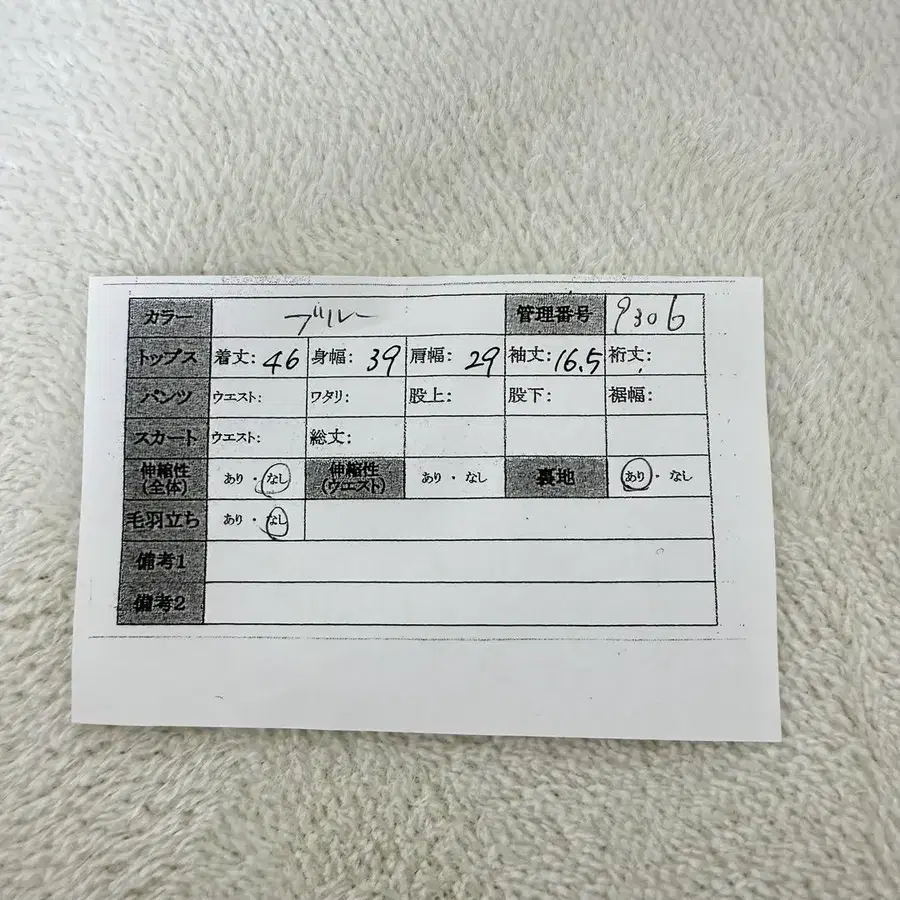 カラー ブルー 管理番号 9306
トップス 着丈: 46 身幅: 39 肩幅: 29 袖丈: 16.5 裄丈:
パンツ ウエスト: ワタリ: 股上: 股下: 裾幅:
スカート ウエスト: 総丈:
伸縮性(全体) あり・なし 伸縮性(ウエスト) あり・なし 裏地 あり・なし
毛羽立ち あり・なし
備考1
備考2